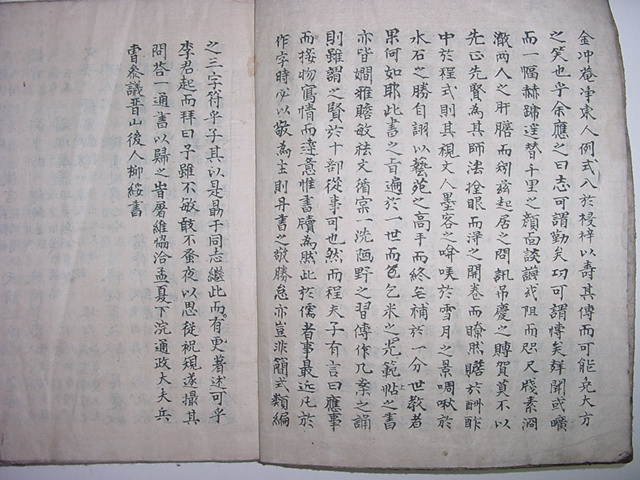 金冲庵淨東人例式入於梓以壽其傳而可能免大方
之笑也乎余應之曰志可謂勤矣功可謂博矣鮮聞或曠
而一幅赫蹄達替千里之顔面談讌或阻而咫尺牋素洞
澈兩人之肝膽而矧玆起居之問訊吊慶之賻賀莫不以
先正先賢為其師法拴眼而淨之開卷而瞭然贍於酬酢
中於程式則其視文人墨客之噓嘆於雪月之景啁啾於
水石之勝自詡以藝苑之高手而終宅補於一分世教者
果何如耶此書之旨遍於一世而乞米之光範帖之書
亦皆嫺雅贍敏祛文循宲一洗陋野之習傳作几案之誦
則雖謂之賢於十部從事可也然而程夫子有言曰應事
而接物寫情而達意惟書牘為然此於儒者事最近凡於
作字時必以敬為主則丹書之敬勝怠亦豈非簡式類編
之三字符乎子其以是勗于同志繼此而有更著述可乎
李君起而拜曰子雖不敏敢不蚤夜以思從祝規遂攝其
問荅一通書以歸之旹屠維恊洽孟夏下浣通政大夫兵
曹叅議晋山後人柳綏書